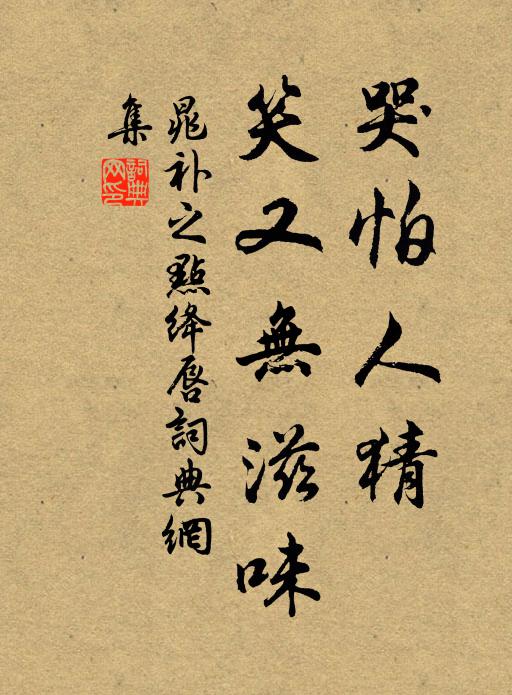 哭怕人猜
笑又無滋味
晁补之點绛唇詞典網
集
詞典
网印